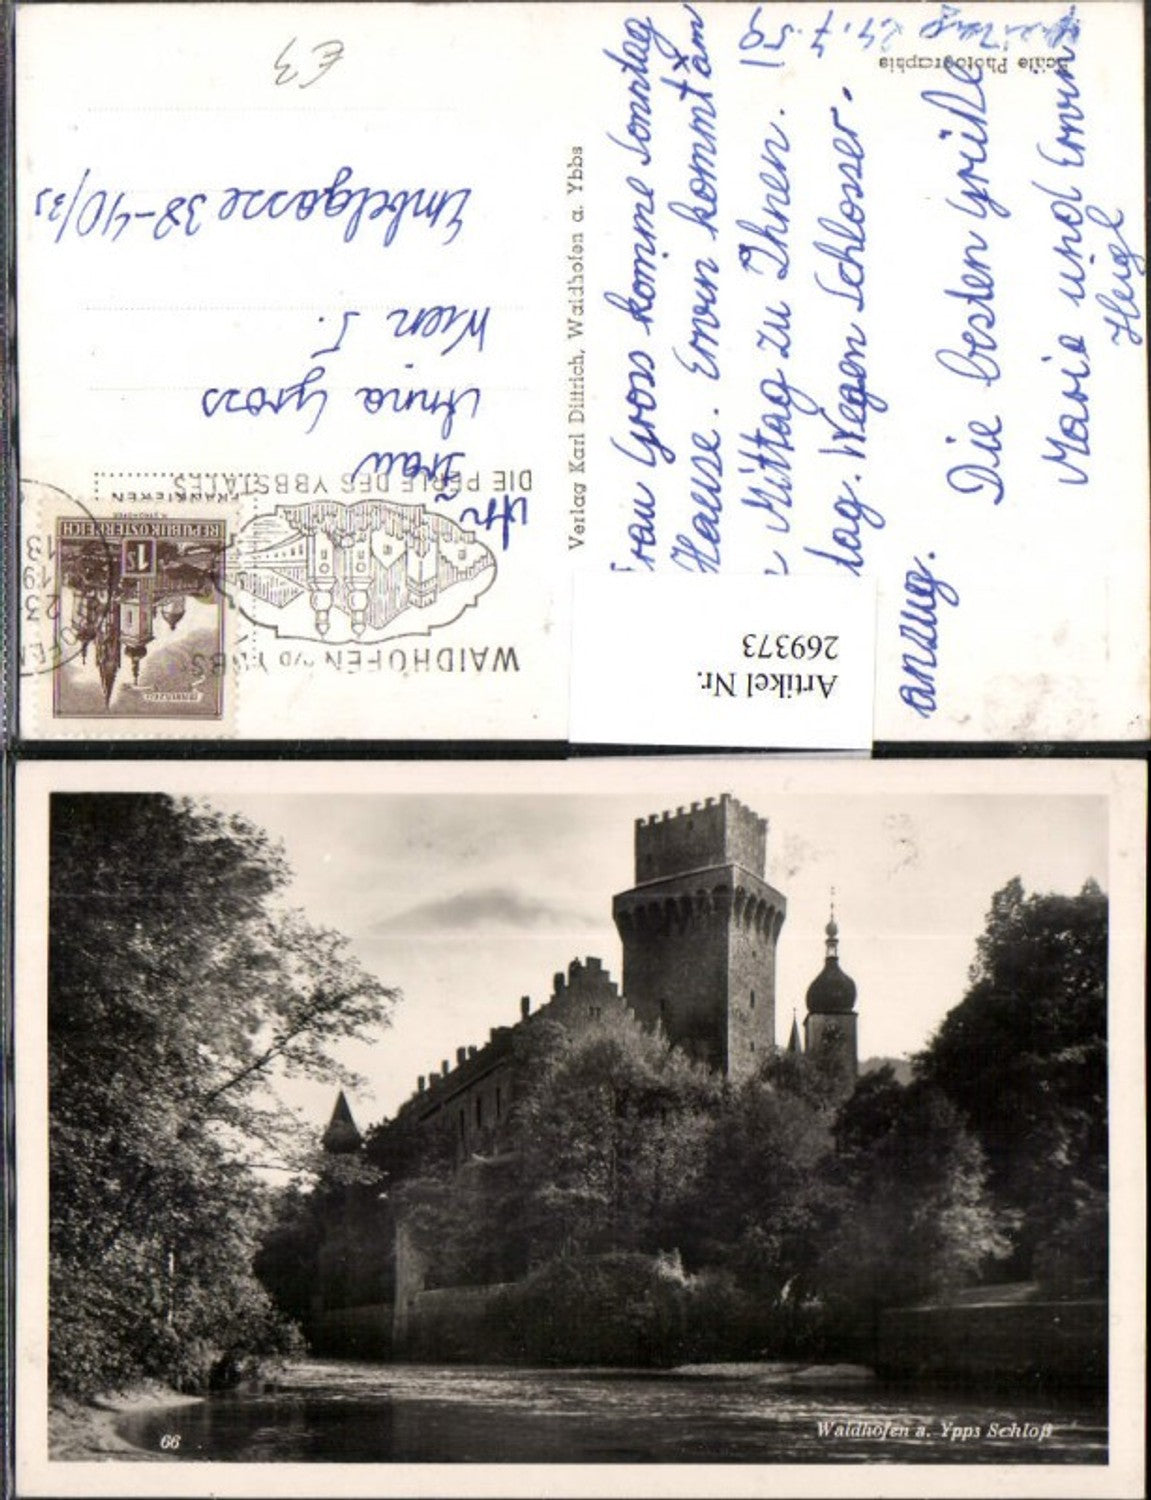 Freitag 24.7.59
Frau Gross komme Sonntag
Hause. Erwin kommt am
Mittag zu Ihnen.
tag. Wegen Schlosser.
anzug.
Die besten Grüße
Marie und Erwin
Heigl
Echte Photographie
Verlag Karl Dittrich, Waidhofen a. Ybbs
WAIDHOFEN a/d YBBS
DIE PERLE DES YBBSTALES
REPUBLIK ÖSTERREICH
1 S
MARIAZELL
FRANKIEREN
An
Frau
Anna Gross
Wien 5.
Embelgasse 38-40/31
€3
Artikel Nr.
269373
66
Waidhofen a. Ypps Schloß